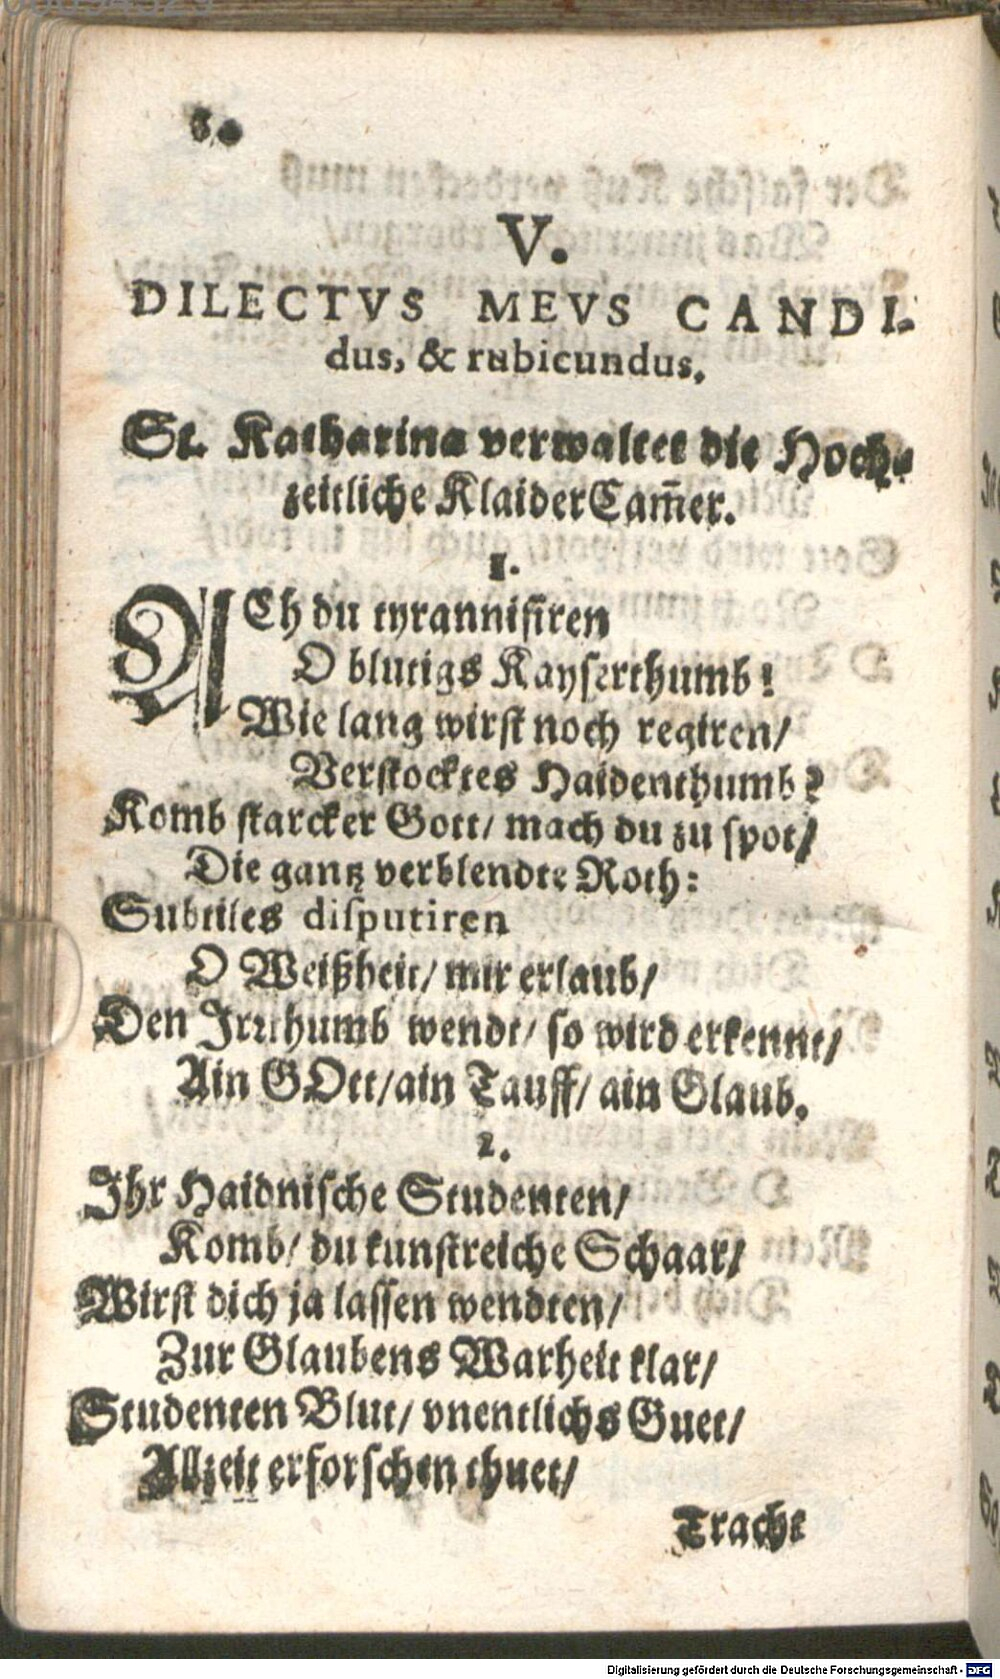 V.
DILECTVS MEVS CANDI-
dus, & rubicundus.
St. Katharina verwaltet die Hoch-
zeitliche KlaiderCam̃er.
1.
ACh du tyrannisiren
O blutigs Kayserthumb!
Wie lang wirst noch regiren/
Verstocktes Haidenthumb?
Komb starcker Gott/ mach du zu spot/
Die gantz verblendte Roth:
Subtiles disputiren
O Weißheit/ mir erlaub/
Den Irrthumb wendt/ so wird erkennt/
Ain GOtt/ain Tauff/ ain Glaub.
2.
Ihr Haidnische Studenten/
Komb/ du kunstreiche Schaar/
Wirst dich ja lassen wendten/
Zur Glaubens Warheit klar/
Studenten Blut/ vnentlichs Guet/
Allzeit erforschen thuet/
Tracht
Digitalisierung gefördert durch die Deutsche Forschungsgemeinschaft - DFG